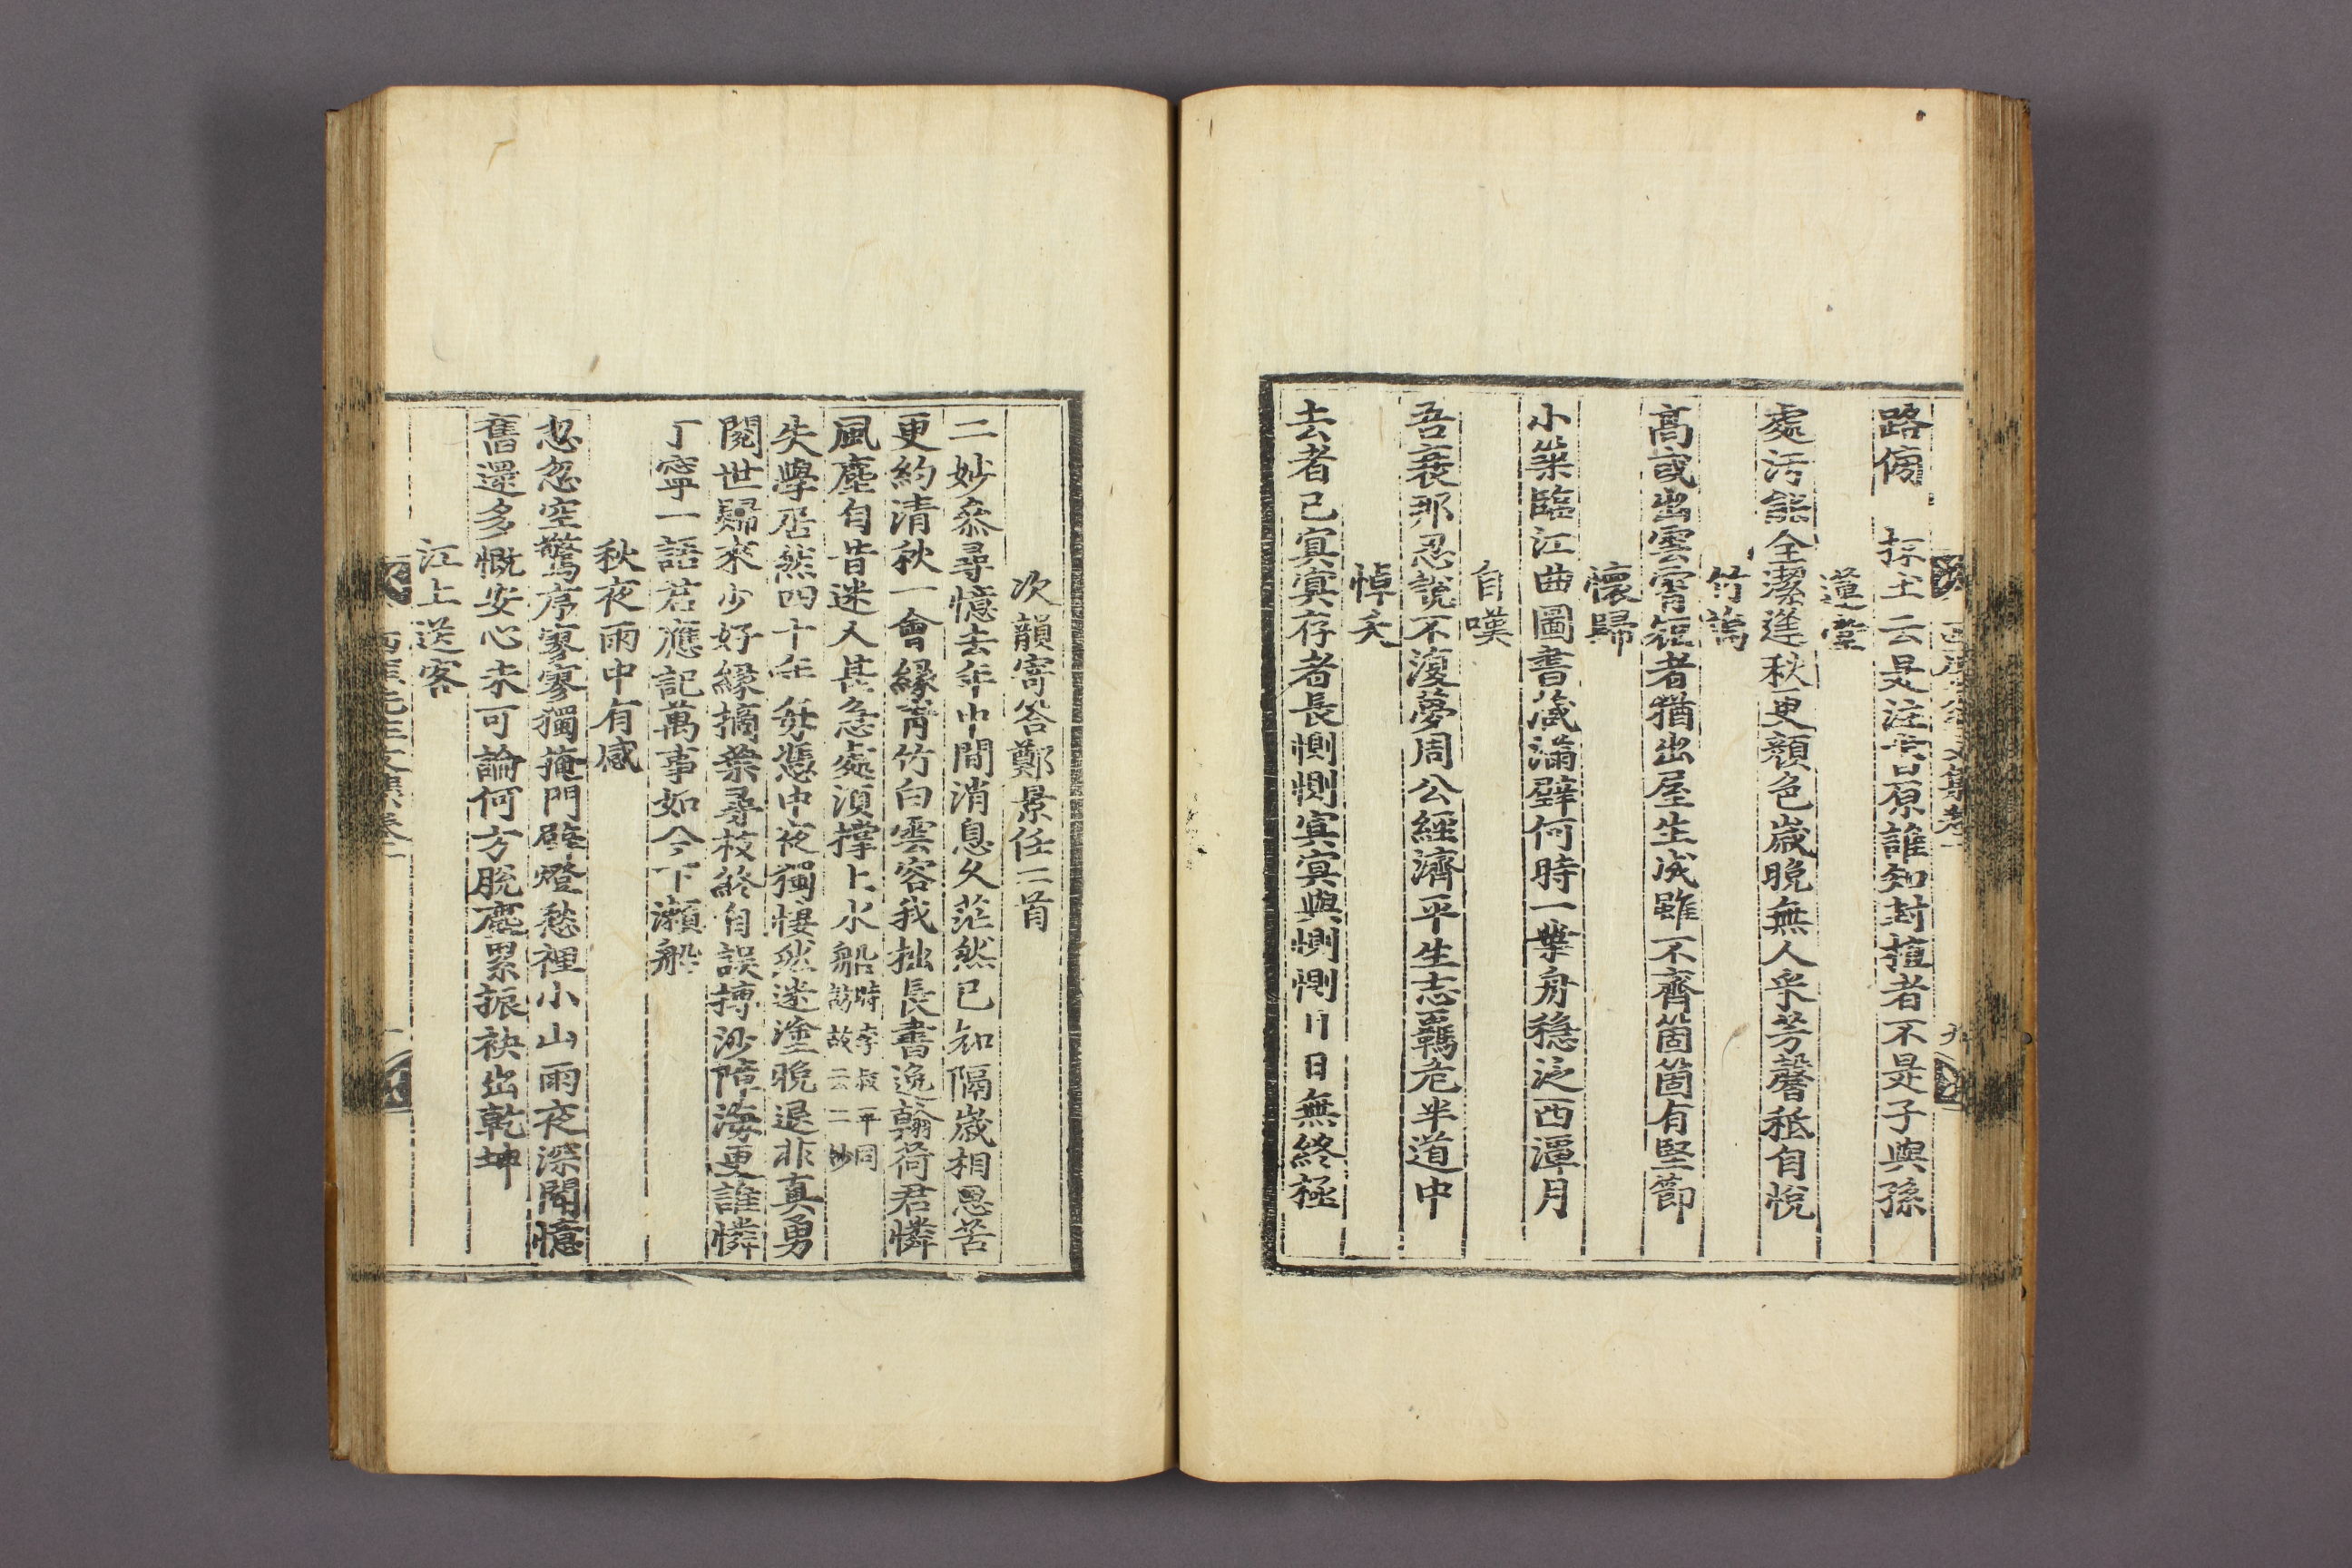 路傍 採土云是注古原誰知封植者不是子與孫
蓮堂
處汚能全潔逢秋更顔色歲晩無人采芳馨秪自悅
竹塢
高或出雲霄短者猶出屋生成雖不齊箇箇有堅節
懷歸
小築臨江曲圖書藏滿壁何時一葉舟穩泛西潭月
自嘆
吾衰那忍說不復夢周公經濟平生志羇危半道中
悼夭
去者已㝠㝠存者長惻惻㝠㝠與惻惻日日無終極
九
次韻寄答鄭景任二首
二妙叅尋憶去年中間消息久茫然已知隔歲相思苦
更約清秋一會緣靑竹白雲容我拙長書逸翰荷君憐
風塵自昔迷人甚急處須撑上水船時李叔平同訪故云二妙
失學居然四十年每憑中夜獨悽然迷塗晩退非真勇
閱世歸來少好緣摘葉尋枝終自誤摶沙障海更誰憐
丁寧一語君應記萬事如今下瀨船
秋夜雨中有感
忽忽空驚序寥寥獨掩門殘燈愁裡小山雨夜深聞憶
舊還多慨安心未可論何方脫塵累振袂出乾坤
江上送客
西厓先生文集卷二